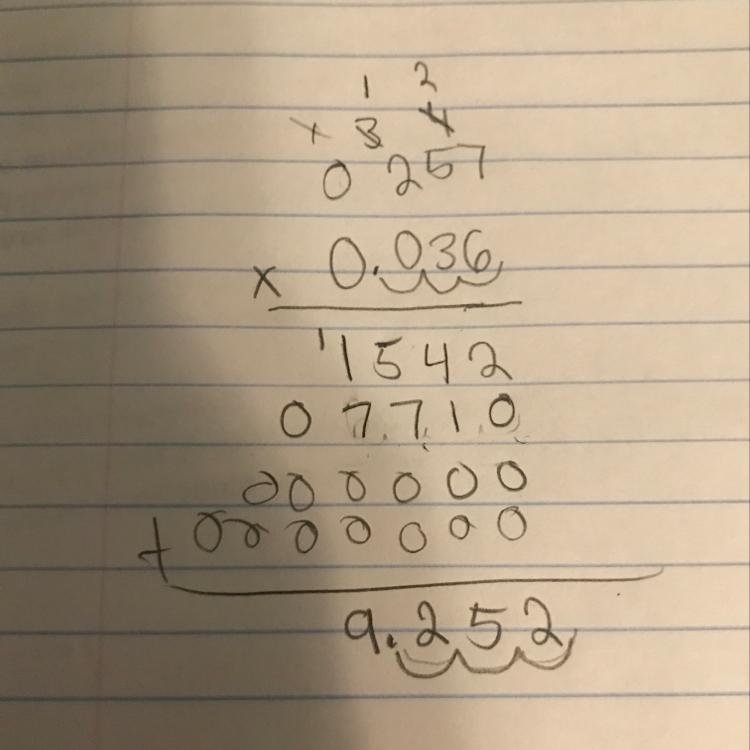 1 2
× 3 4
0 257
× 0.036
1 1542
07710
000000
+ 0000000
9.252